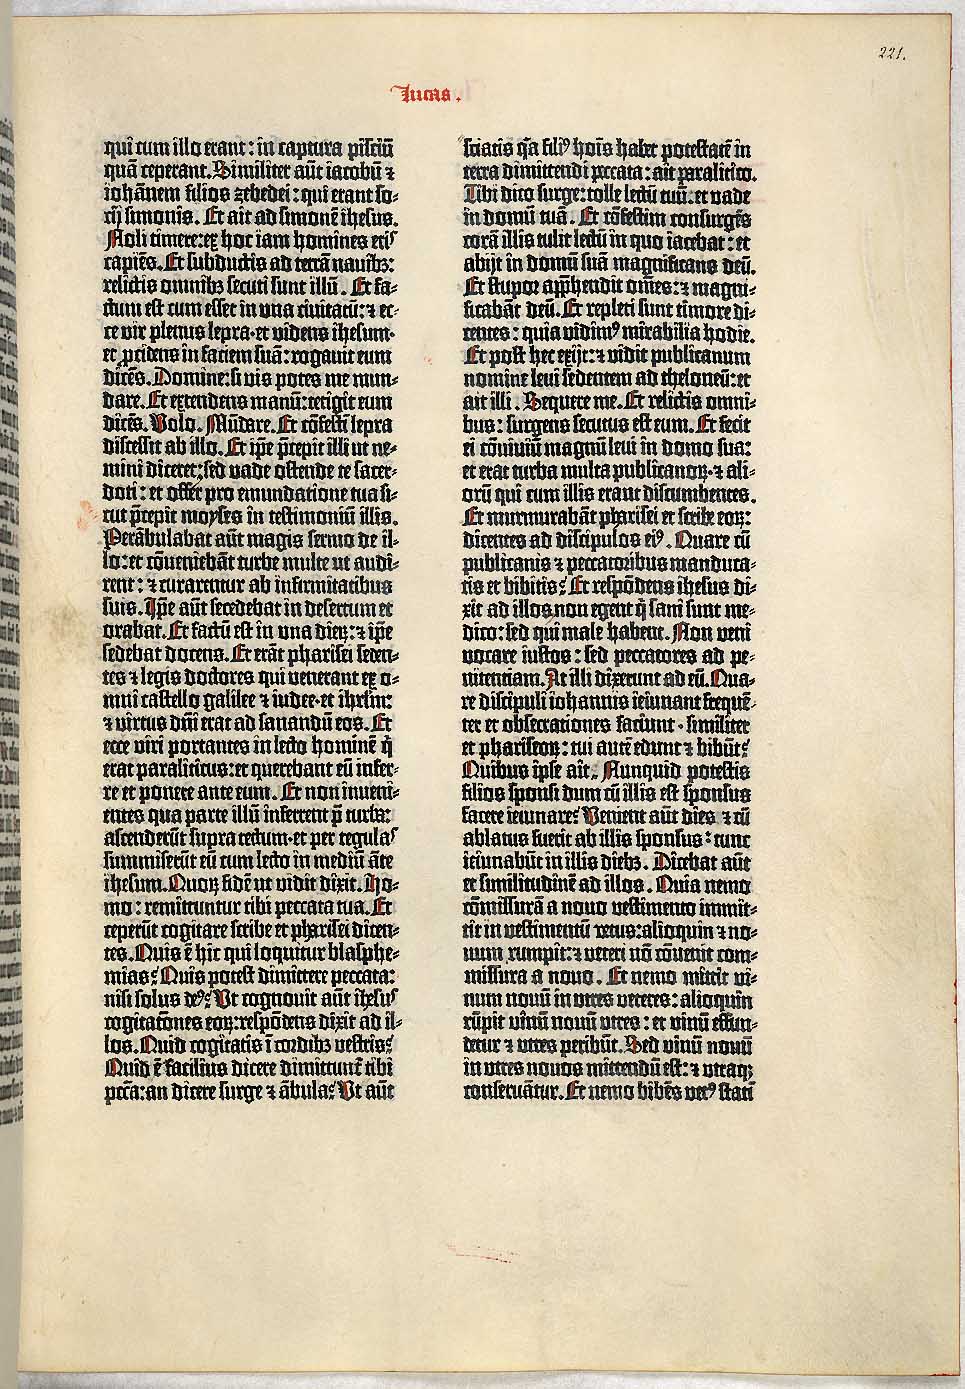 221.
Lucas.
qui cum illo erant: in captura pisciū
quā ceperant. Similiter aūt iacobū ⁊
iohānem filios zebedei: qui erant so⸗
cij simonis. Et ait ad simonē ihesus.
Noli timere: ex hoc iam homines eris
capiēs. Et subductis ad terrā navibꝫ:
relictis omnibꝫ secuti sunt illū. Et fa⸗
ctum est cum esset in una civitatū: ⁊ ec⸗
ce vir plenus lepra· et videns ihesum·
et ꝓcidens in faciem suā: rogavit eum
dicēs. Domine: si vis potes me mun⸗
dare. Et extendens manū: tetigit eum
dicēs. Volo. Mūdare. Et cōfestī lepra
discessit ab illo. Et ip̄e p̄cepit illi ut ne⸗
mini diceret: sed vade ostende te sacer⸗
doti: et offer pro emundatione tua si⸗
cut p̄cepit moyses in testimoniū illis.
Perābulabat aūt magis sermo de il⸗
lo: et cōveniebāt turbe multe ut audi⸗
rent: ⁊ curarentur ab infirmitatibus
suis. Ip̄e aūt secedebat in desertum et
orabat. Et factū est in una dieꝝ: ⁊ ip̄e
sedebat docens. Et erāt pharisei seden⸗
tes ⁊ legis doctores qui venerant ex o⸗
mni castello galilee ⁊ iudee· et ihrl̄m:
⁊ virtus dn̄i erat ad sanandū eos. Et
ecce viri portantes in lecto hominē q̄
erat paraliticus: et querebant eū infer⸗
re et ponere ante eum. Et non inveni⸗
entes qua parte illū inferrent p̄ turba:
ascenderūt supra tectum· et per tegulas
summiserūt eū cum lecto in mediū āte
ihesum. Quoꝝ fidē ut vidit dixit. Ho⸗
mo: remittuntur tibi peccata tua. Et
ceperūt cogitare scribe et pharisei dicen⸗
tes. Quis ē hic qui loquitur blasphe⸗
mias? Quis potest dimittere peccata:
nisi solus deꝰ? Ut cognovit aūt ihesus
cogitatōnes eoꝝ: respōdens dixit ad il⸗
los. Quid cogitatis ī cordibꝫ vestris?
Quid ē facilius dicere dimittunt᷑ tibi
pccā: an dicere surge ⁊ ābula? Ut aūt
sciatis q̄a filiꝰ hoīs habet potestatē in
terra dimittendi peccata: ait paralitico.
Tibi dico surge: tolle lectū tuū: et vade
in domū tuā. Et cōfestim consurgēs
corā illis tulit lectū in quo iacebat: et
abijt in domū suā magnificans deū.
Et stupor app̄hendit om̄es: ⁊ magni⸗
ficabāt deū. Et repleti sunt timore di⸗
centes: quia vidimꝰ mirabilia hodie.
Et post hec exijt: ⁊ vidit publicanum
nomine levi sedentem ad theloneū: et
ait illi. Sequere me. Et relictis omni⸗
bus: surgens secutus est eum. Et fecit
ei cōviviū magnū levi in domo sua:
et erat turba multa publicanoꝝ· ⁊ ali⸗
orū qui cum illis erant discumbentes.
Et murmurabāt pharisei et scribe eoꝝ:
dicentes ad discipulos eiꝰ. Quare cū
publicanis ⁊ peccatoribus manduca⸗
tis et bibitis? Et respōdens ihesus di⸗
xit ad illos non egent q̄ sani sunt me⸗
dico: sed qui male habent. Non veni
vocare iustos: sed peccatores ad pe⸗
nitentiam. At illi dixerunt ad eū. Qua⸗
re discipuli iohannis ieiunant frequē⸗
ter et obsecrationes faciunt· similiter
et phariseoꝝ: tui autē edunt ⁊ bibūt?
Quibus ipse ait. Nunquid potestis
filios sponsi dum cū illis est sponsus
facere ieiunare? Venient aūt dies ⁊ cū
ablatus fuerit ab illis sponsus: tunc
ieiunabūt in illis diebꝫ. Dicebat aūt
et similitudinē ad illos. Quia nemo
cōmissurā a novo vestimento immit⸗
tit in vestimentū vetus: alioquin ⁊ no⸗
vum rumpit: ⁊ veteri nō cōvenit com⸗
missura a novo. Et nemo mittit vi⸗
num novū in utres veteres: alioquin
rūpit vinū novū utres: et vinū effun⸗
detur ⁊ utres peribūt. Sed vinū novū
in utres novos mittendū est: ⁊ utraqꝫ
conservātur. Et nemo bibēs vetꝰ stati